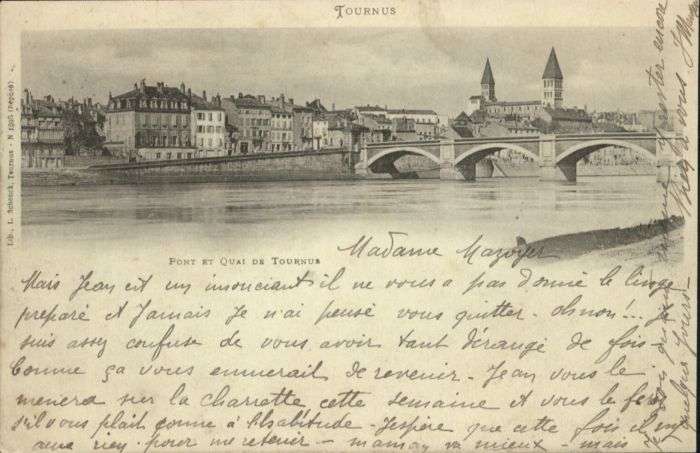 TOURNUS
Lib. L. Schenck, Tournus - N 1296 (Déposé)
PONT ET QUAI DE TOURNUS
Madame Mazoyer
Mais Jean est un insouciant il ne vous a pas donné le linge
preparé et Jamais Je n'ai pensé vous quitter. oh non!.. Je
suis assez confuse de vous avoir tant dérangé de fois-
Comme ça vous ennuerait de revenir. Jean vous le
menera sur la charrette cette semaine et vous le ferez
s'il vous plait comme à l'habitude. J'espère que cette fois il n'y
aura rien pour me retenir - maman va mieux - mais
rester encore
quelques jours